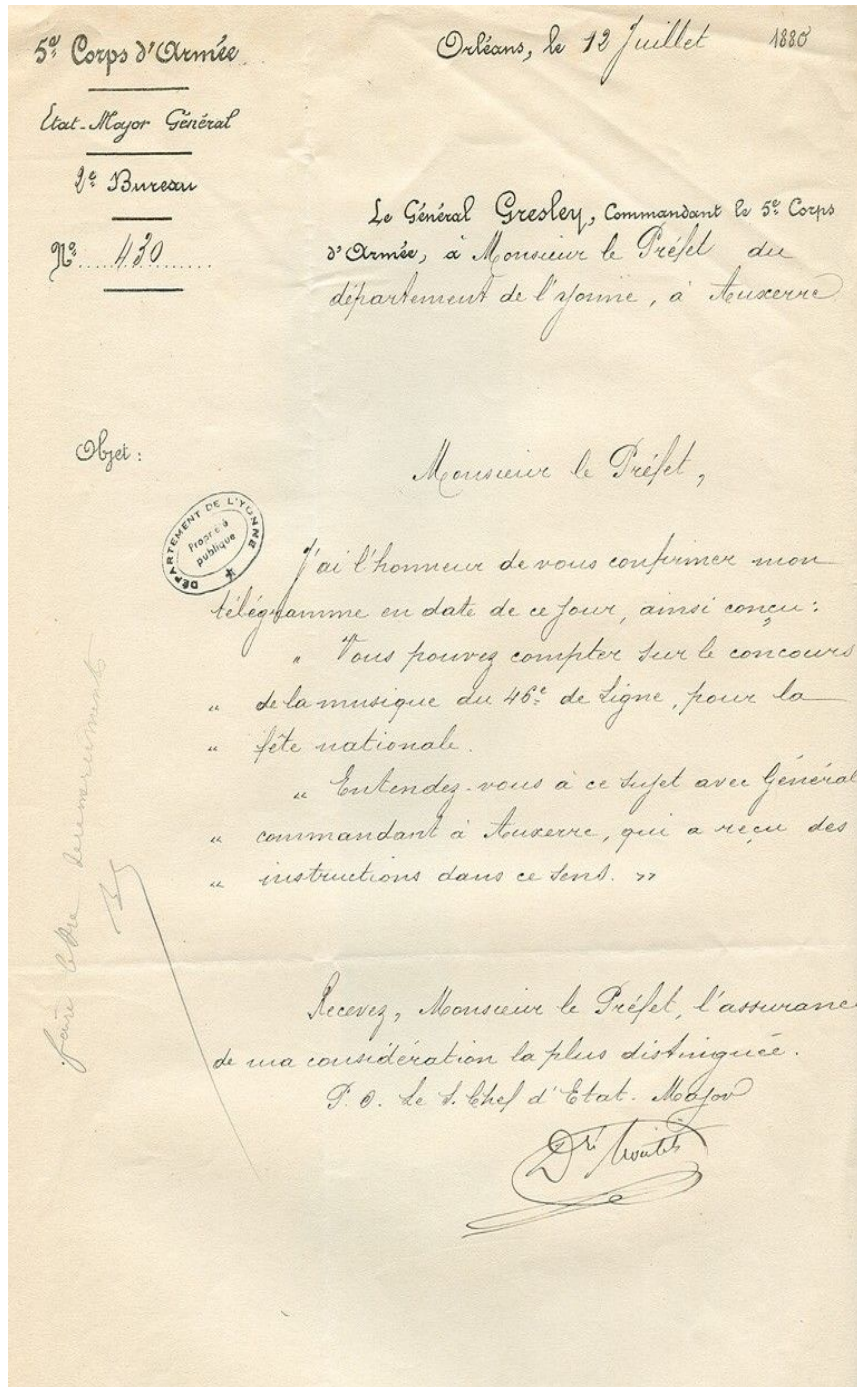 5e Corps d'Armée
Orléans, le 12 Juillet 1880
Etat-Major Général
2e Bureau
No 430
Le Général Gresley, Commandant le 5e Corps
d'Armée, à Monsieur le Préfet du
département de l'Yonne, à Auxerre
Objet :
Monsieur le Préfet,
DÉPARTEMENT DE L'YONNE
Propriété
publique
J'ai l'honneur de vous confirmer mon
télégramme en date de ce jour, ainsi conçu :
" Vous pouvez compter sur le concours
" de la musique du 46e de Ligne, pour la
" fête nationale.
" Entendez-vous à ce sujet avec Général
" commandant à Auxerre, qui a reçu des
" instructions dans ce sens. "
Recevez, Monsieur le Préfet, l'assurance
de ma considération la plus distinguée.
P. O. Le S. Chef d'Etat-Major
faire lettre